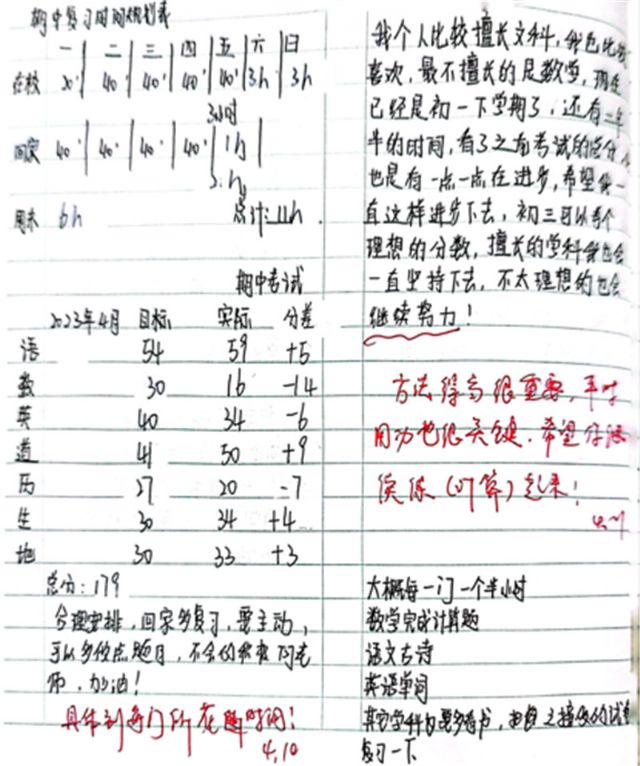 期中复习时间规划表
一 二 三 四 五 六 日
在校 20' 40' 40' 40' 40' 3h 3h
3小时
回家 40' 40' 40' 40' 1h
3h
周末 6h 总计:11h
期中考试
2023年4月 目标 实际 分差
语 54 59 +5
数 30 16 -14
英 40 34 -6
道 41 50 +9
历 27 20 -7
生 30 34 +4
地 30 33 +3
总分:179
合理安排,回家多复习,要主动,
可以多做点题目,不会的问老
师,加油!
具体到每门所花时间!
4.10
我个人比较擅长文科,我也比较
喜欢,最不擅长的是数学,现在
已经是初一下学期了,还有二年
半的时间,有了之前考试的总分,
也是有一点一点在进步,希望我一
直这样进步下去,初三可以考个
理想的分数,擅长的学科我也会
一直坚持下去,不太理想的也会
继续努力!
方法得当很重要,平时
用功也很关键.希望你继
续练(计算)起来!
大概每一门一个半小时
数学完成计算题
语文古诗
英语单词
其它学科也要多看书,把自己之前做的试卷
复习一下